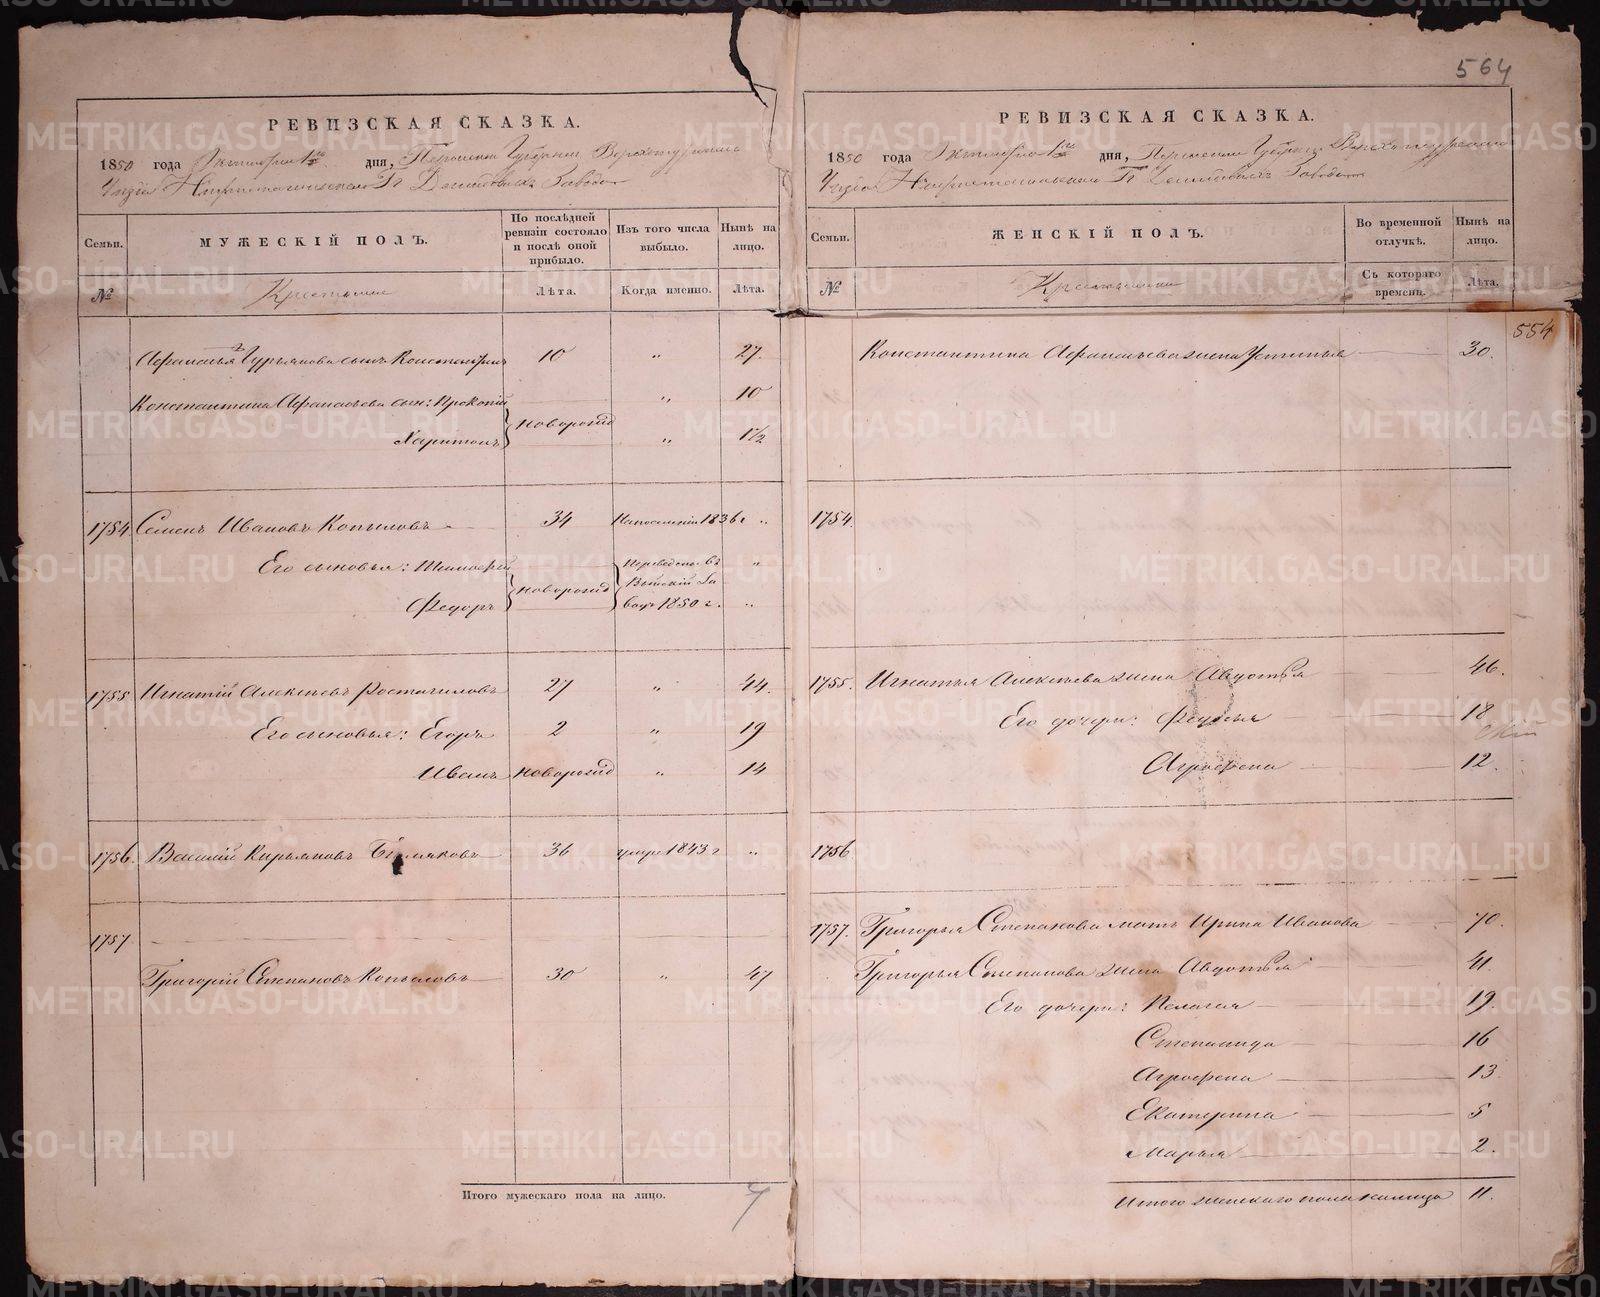 564
РЕВИЗСКАЯ СКАЗКА.
1850 года Октября 1го дня, Пермской Губернии Верхотурскаго
Уезда Нижнетагильскаго Гг Демидовыхъ Завода
Семьи.
МУЖЕСКІЙ ПОЛЪ.
По послѣдней ревизіи состояло и послѣ оной прибыло.
Изъ того числа выбыло.
Нынѣ на лицо.
№
Крестьяне
Лѣта.
Когда именно.
Лѣта.
Афанасья Гурьянова сынъ Константинъ 10 " 27.
Константина Афанасьева сын: Прокопій " 10
новорожд
Харитонъ " 1 1/2
1754. Семенъ Ивановъ Копыловъ 34 1836 г "
Его сыновья: Тимофей новорожд Переведены въ "
Выйскій За
Федоръ водъ 1850 г. "
1755. Игнатій Алексѣевъ 27 " 44.
Его сыновья: Егоръ 2 " 19
Иванъ новорожд " 14
1756. Василій Кирьяновъ 36 умеръ 1843 г "
1757
Григорій Степановъ Копыловъ 30 " 47
Итого мужескаго пола на лицо. 7
РЕВИЗСКАЯ СКАЗКА.
1850 года Октября 1го дня, Пермской Губернии Верхотурскаго
Уезда Нижнетагильскаго Гг Демидовыхъ Завода
Семьи.
ЖЕНСКІЙ ПОЛЪ.
Во временной отлучкѣ.
Нынѣ на лицо.
№
Крестьянки
Съ котораго времени.
Лѣта.
554
Константина Афанасьева жена Устинья 30.
1754.
1755. Игнатья Алексѣева жена Авдотья 46.
Его дочери: Федосья 18
Агрофена 12.
1756
1757. Григорья Степанова мать Ирина Иванова 70.
Григорья Степанова жена Авдотья 41.
Его дочери: Пелагея 19.
Степанида 16
Агрофена 13
Екатерина 5
Марья 2.
Итого женскаго пола на лицо 11.
METRIKI.GASO-URAL.RU